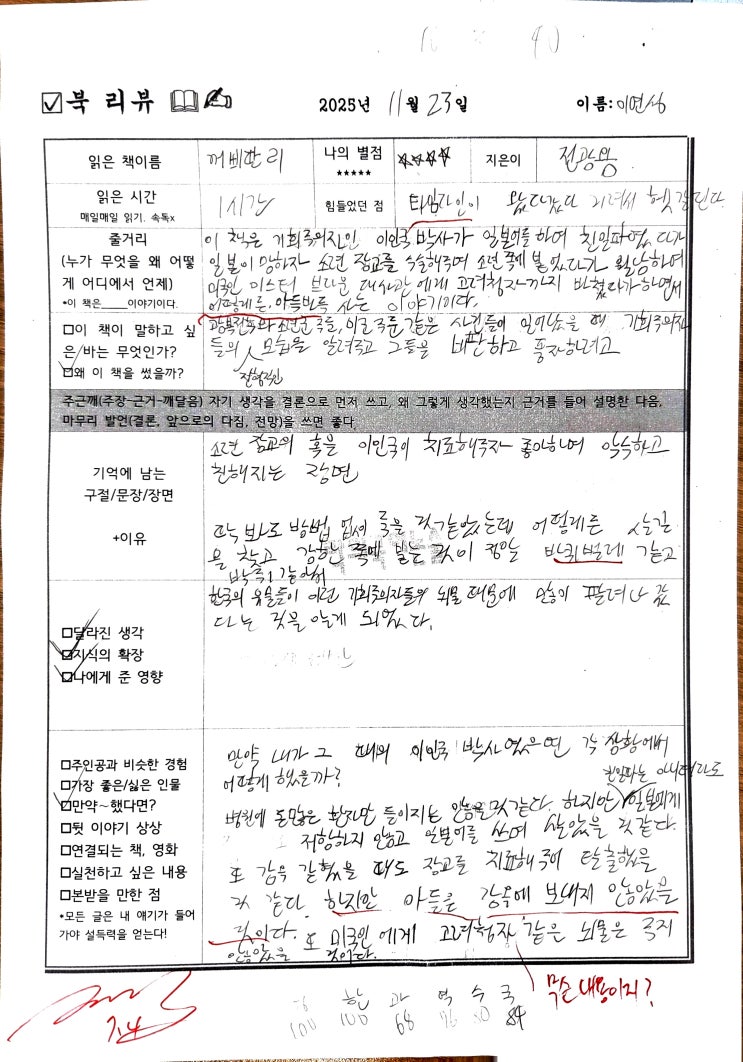 북 리뷰
2025년 11월 23일
이름: 이연성
읽은 책이름
꺼삐딴 리
나의 별점
★★★★★
☆☆☆☆
지은이
전광용
읽은 시간
매일매일 읽기. 속독x
1시간
힘들었던 점
타임라인이 왔다갔다 거려서 헷갈린다
줄거리
(누가 무엇을 왜 어떻
게 어디에서 언제)
*이 책은____이야기이다.
이 책은 기회주의자인 이인국 박사가 일본어를 하며 친일파였다가
일본이 망하자 소련 장교를 수술해주며 소련 쪽에 붙었다가 월남하여
미국인 미스터 브라운 대사관에게 고려청자까지 바쳤다가 하면서
어떻게든 아득바득 사는 이야기이다.
□이 책이 말하고 싶
은 바는 무엇인가?
□왜 이 책을 썼을까?
같은 사건들이 일어났을 때 기회주의자
들의 전형적인 모습을 알려주고 그들을 비판하고 풍자하려고
주근깨(주장-근거-깨달음) 자기 생각을 결론으로 먼저 쓰고, 왜 그렇게 생각했는지 근거를 들어 설명한 다음,
마무리 발언(결론, 앞으로의 다짐, 전망)을 쓰면 좋다.
기억에 남는
구절/문장/장면
+이유
소련 장교의 혹을 이인국이 치료해주자 좋아하며 악수하고
친해지는 장면
딱 봐도 방법 없이 죽을 것 같았는데 어떻게든 살길
을 찾고 강한 쪽에 붙는 것이 정말 바퀴벌레 같고
박쥐 같아서
□달라진 생각
□지식의 확장
□나에게 준 영향
한국의 유물들이 이런 기회주의자들의 뇌물 때문에 많이 팔려나갔
다는 것을 알게 되었다.
□주인공과 비슷한 경험
□가장 좋은/싫은 인물
□만약~했다면?
□뒷 이야기 상상
□연결되는 책, 영화
□실천하고 싶은 내용
□본받을 만한 점
*모든 글은 내 얘기가 들어
가야 설득력을 얻는다!
만약 내가 그 때의 이인국 박사였으면 각 상황에서
어떻게 했을까?
병원에 돈많은 환자만 들이지는 않을 것 같다. 하지만 친일파는 아니더라도 일본에게
저항하지 않고 일본어를 쓰며 살았을 것 같다.
또 감옥 갇혔을 때도 장교를 치료해주어 탈출했을
것 같다. 하지만 아들은 감옥에 보내지 않았을
것이다. 또 미국인에게 고려청자 같은 뇌물은 주지
않았을 것이다.
무슨 내용이지?
한 과 역 수 국
100 100 68 76 80 84